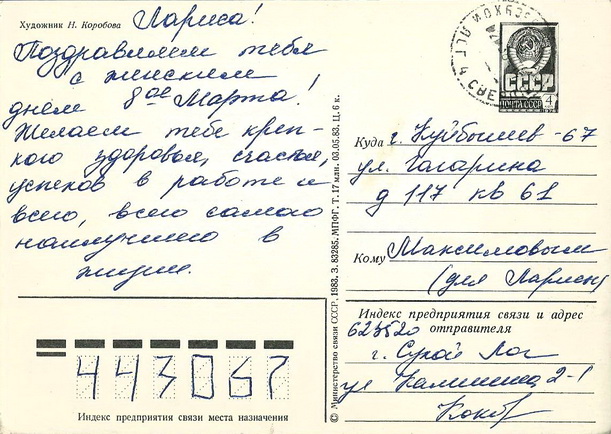 Художник Н. Коробова
Лариса!
Поздравляем тебя
с женским
днём 8ое Марта!
Желаем тебе креп-
кого здоровья, счастья,
успехов в работе и
всего, всего самого
наилучшего в
жизни.
СССР
ПОЧТА СССР
4
Куда г. Куйбышев-67
ул. Гагарина
д 117 кв 61
Кому Максимовым
(для Ларисы)
Индекс предприятия связи и адрес
отправителя
623520
г. Сухой Лог
ул Калинина 2-1
443067
Индекс предприятия связи места назначения
© Министерство связи СССР, 1983, З. 83285, МПФГ, Т. 17 млн. 03.05.83, Ц. 6 к.